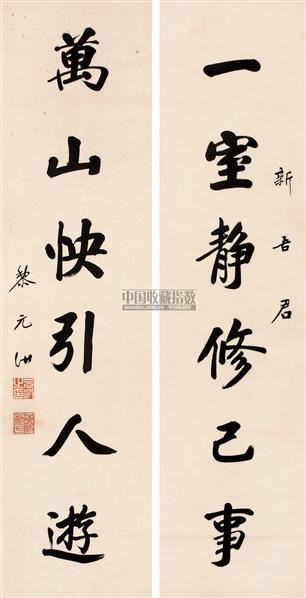 新吾君
一室静修己事
萬山快引人遊
黎元洪
中国收藏指数